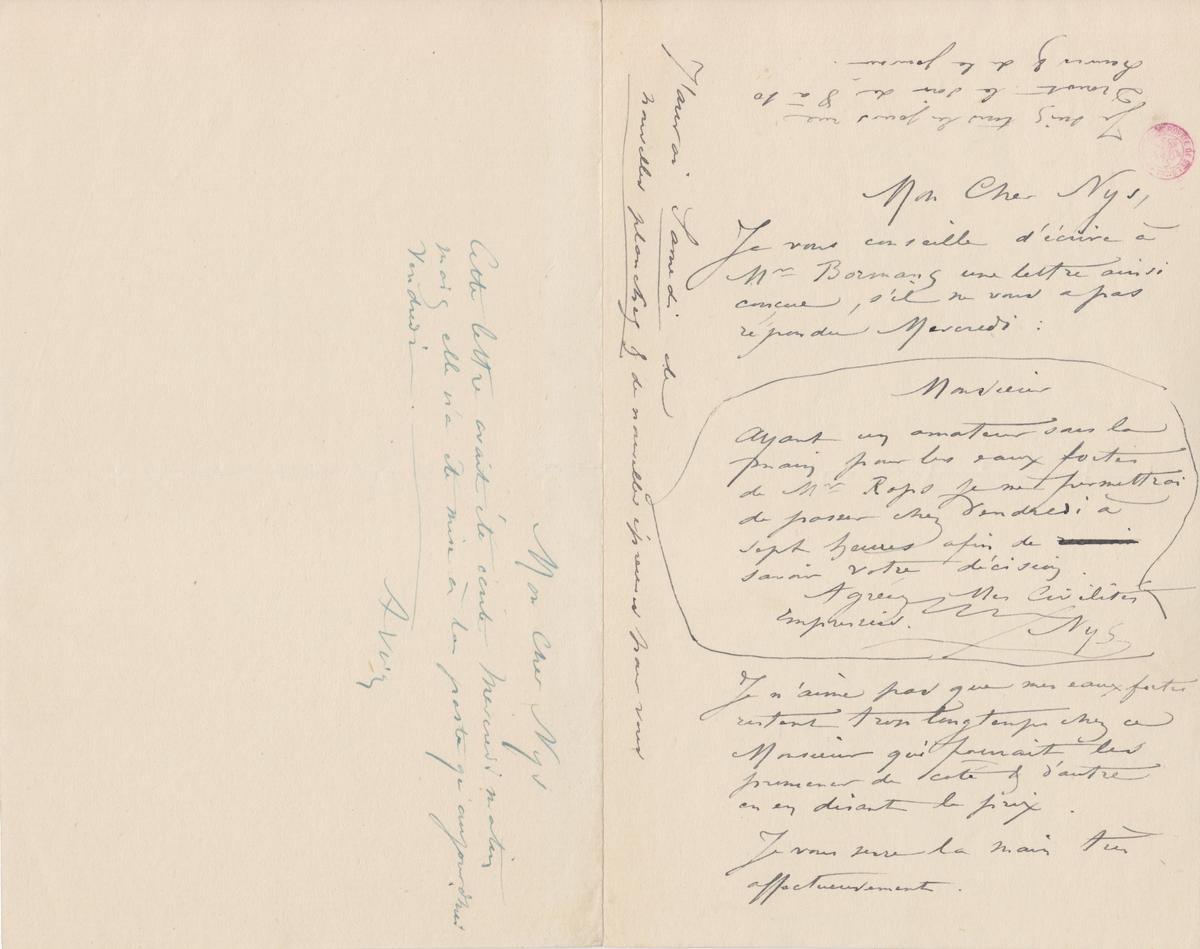 Mon Cher Nys,
Je vous conseille d'écrire à
Mr Bormans une lettre ainsi
concue, s'il ne vous a pas
répondu Mercredi :
Monsieur
Ayant un amateur sous la
main pour les eaux fortes
de Mr Rops je me permettrai
de passer chez Vendredi à
sept heures afin de
savoir votre décision.
Agréez Mes Civilités
Empressées.
Nys
Je n'aime pas que mes eaux fortes
restent trop longtemps chez ce
Monsieur qui pourrait les
promener de coté & d'autre
en en disant le prix.
Je vous serre la main très
affectueusement.
Je suis tous les jours rue
Drouot le soir de 8 à 10
heures & de le journée.
J'aurai Samedi de
nouvelles planches & de nouvelles épreuves pour vous
Mon Cher Nys
Cette lettre avait été écrite Mercredi matin
mais elle n'a été mise à la poste qu'aujourd'hui
Vendredi
A Vous